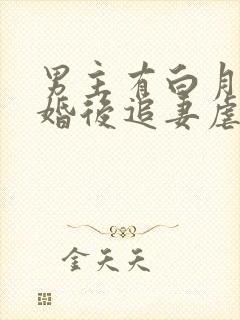 男主有白月
婚後追妻虐
金天天